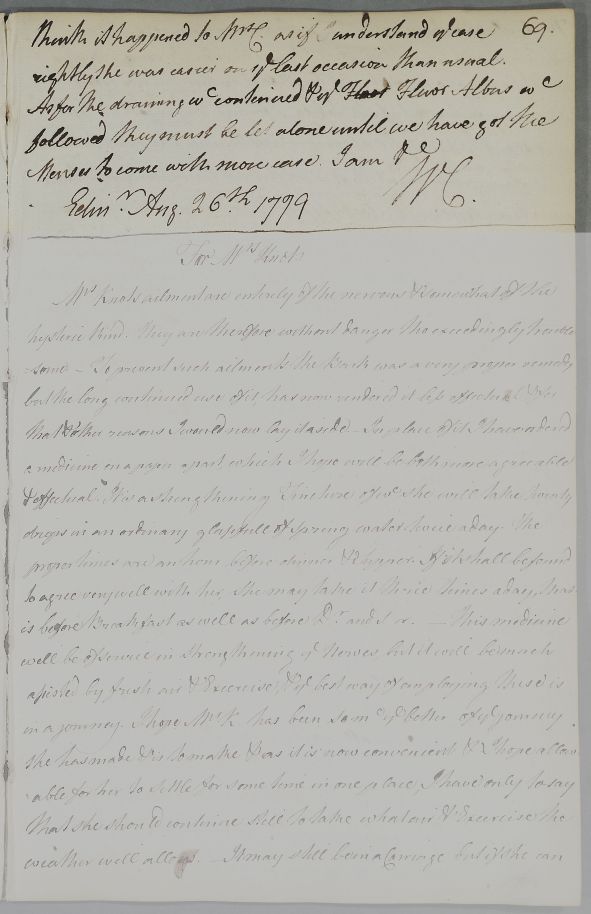 think it happened to Mrs C. as if I understand ye case 69.
rightly she was easier on ye last occasion than usual.
As for the draining wc continued & ye Fluor Fluor Albus wc
followed they must be let alone until we have got the
Menses to come with more ease. I am &c
WC.
Edinr. Aug. 26th. 1779
For Mrs Knox
Mrs Knoxs ailments are entirely of the nervous & somewhat of the
hysteric kind. They are therefore without danger tho exceedingly trouble
-some - To prevent such ailments the Bark was a very proper remedy
but the long continued use of it, has now rendered it less effectual & for
that & other reasons I would now lay it aside - In place of it I have ordered
a medicine on a paper apart which I hope will be both more agreeable
& effectual. It is a strengthening Tincture of wc she will take twenty
drops in an ordinary glassfull of spring water twice a day. The
proper times are an hour before dinner & supper. If it shall be found
to agree very well with her, she may take it thrice times a day, that
is before Breakfast as well as before Dr. and Sr. — This medicine
will be of service in strengthening ye Nerves, but it will be much
assisted by fresh air & Exercise, & ye best way of employing these is
in a journey. I hope Mrs K. has been somew ye better of ye journey
she has made & is to make & as it is now convenient & I hope allow
able for her to settle for some time in one place, I have only to say
that she should continue still to take what air & Exercise the
weather will allow. — It may still be in a Carriage but if she can